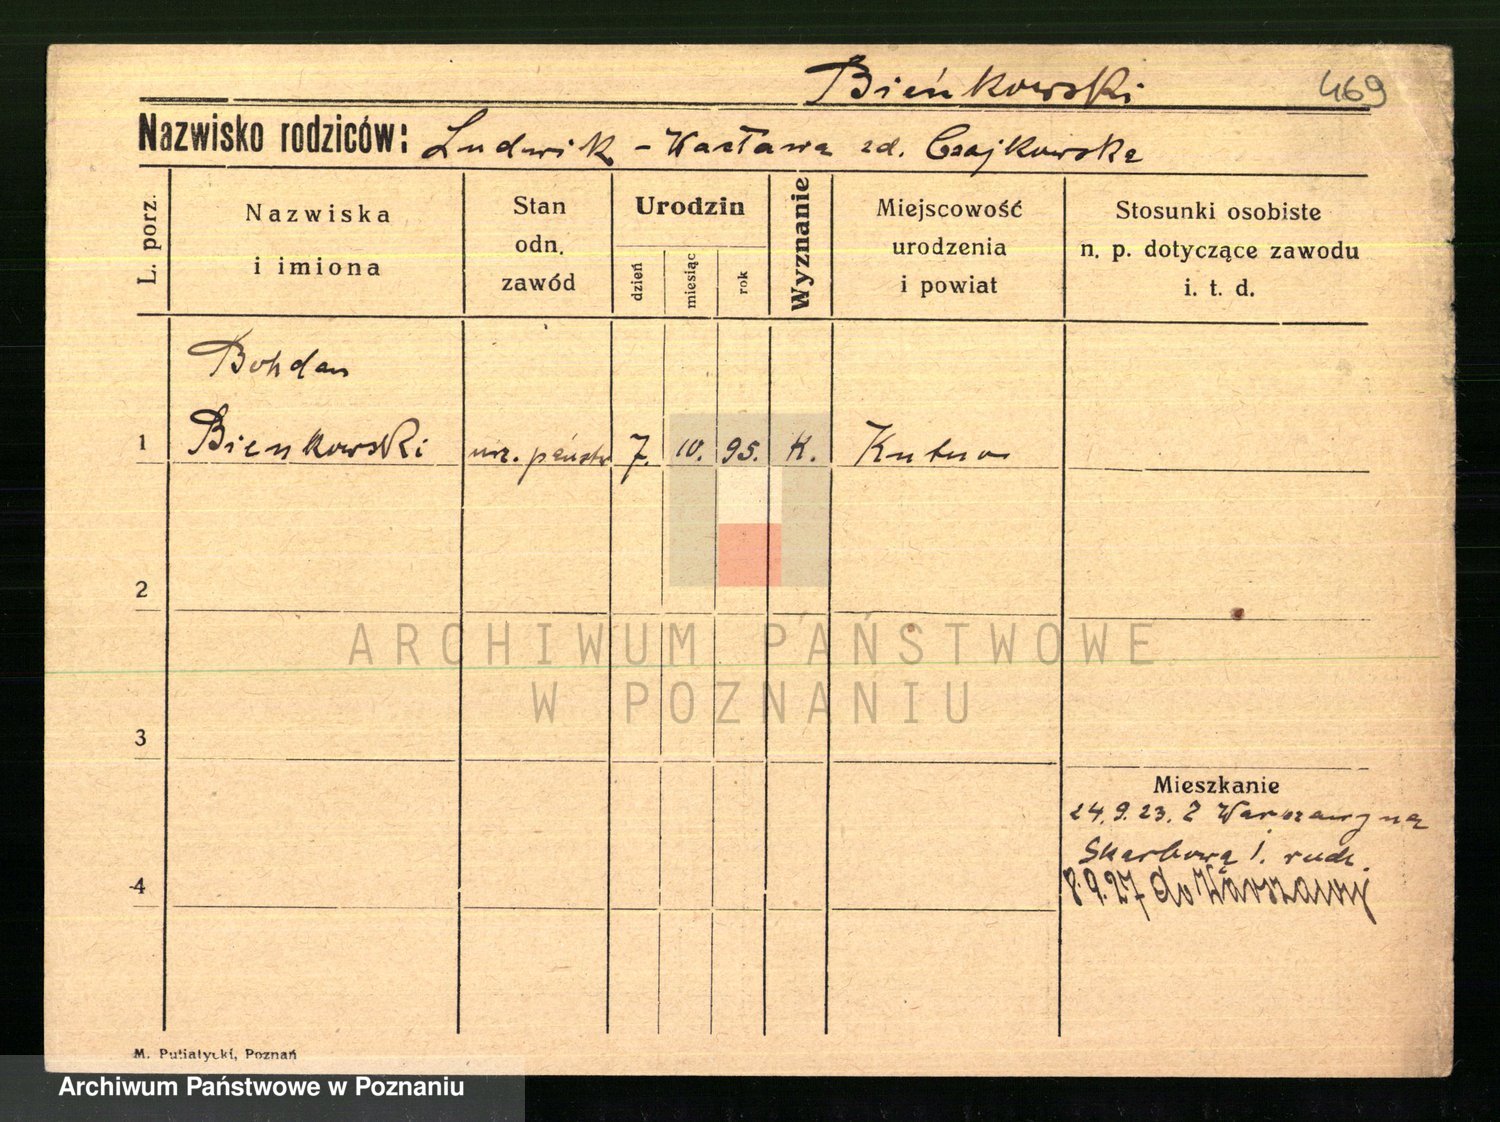 Bieńkowski 469
Nazwisko rodziców: Ludwik – Wacława zd. Czajkowska
L. porz.
Nazwiska
i imiona
Stan
odn.
zawód
Urodzin
dzień
miesiąc
rok
Wyznanie
Miejscowość
urodzenia
i powiat
Stosunki osobiste
n. p. dotyczące zawodu
i. t. d.
Bohdan
1 Bienkowski urz. państw 7. 10. 95. K. Kutno
2
3
4
ARCHIWUM PAŃSTWOWE
W POZNANIU
Mieszkanie
24.9.23. Z Warszawy na
Skarbową 1.
8.9.27 do Warszawy
M. Putiatycki, Poznań
Archiwum Państwowe w Poznaniu